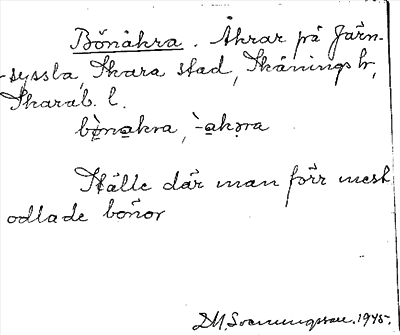 Bönåkra. Åkrar på Järn-
sysslа, Skara stad, Skånings hr,
Skarab. l.
bö̀nakra, `-akəra
Ställe där man förr mest
odlade bönor
D.M. Svenungsson. 1945.